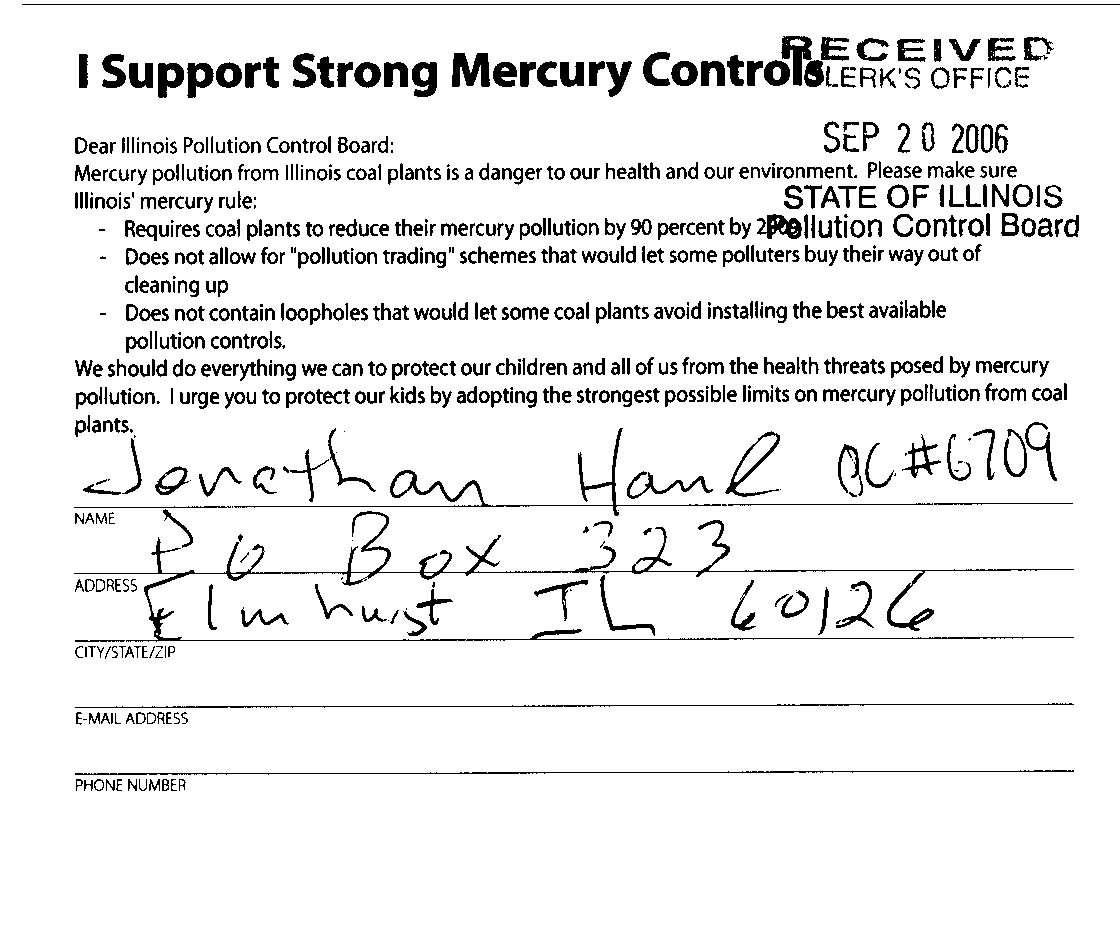 I Support Strong Mercury Controls
RECEIVED
CLERK'S OFFICE
SEP 20 2006
STATE OF ILLINOIS
Pollution Control Board
Dear Illinois Pollution Control Board:
Mercury pollution from Illinois coal plants is a danger to our health and our environment. Please make sure
Illinois' mercury rule:
- Requires coal plants to reduce their mercury pollution by 90 percent by
- Does not allow for "pollution trading" schemes that would let some polluters buy their way out of
cleaning up
- Does not contain loopholes that would let some coal plants avoid installing the best available
pollution controls.
We should do everything we can to protect our children and all of us from the health threats posed by mercury
pollution. I urge you to protect our kids by adopting the strongest possible limits on mercury pollution from coal
plants.
Jonathan #6709
NAME
P O Box 323
ADDRESS
Elmhurst IL 60126
CITY/STATE/ZIP
E-MAIL ADDRESS
PHONE NUMBER